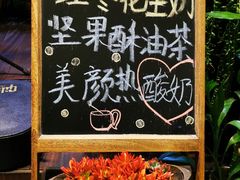 花生奶
坚果酥油茶
美颜热酸奶